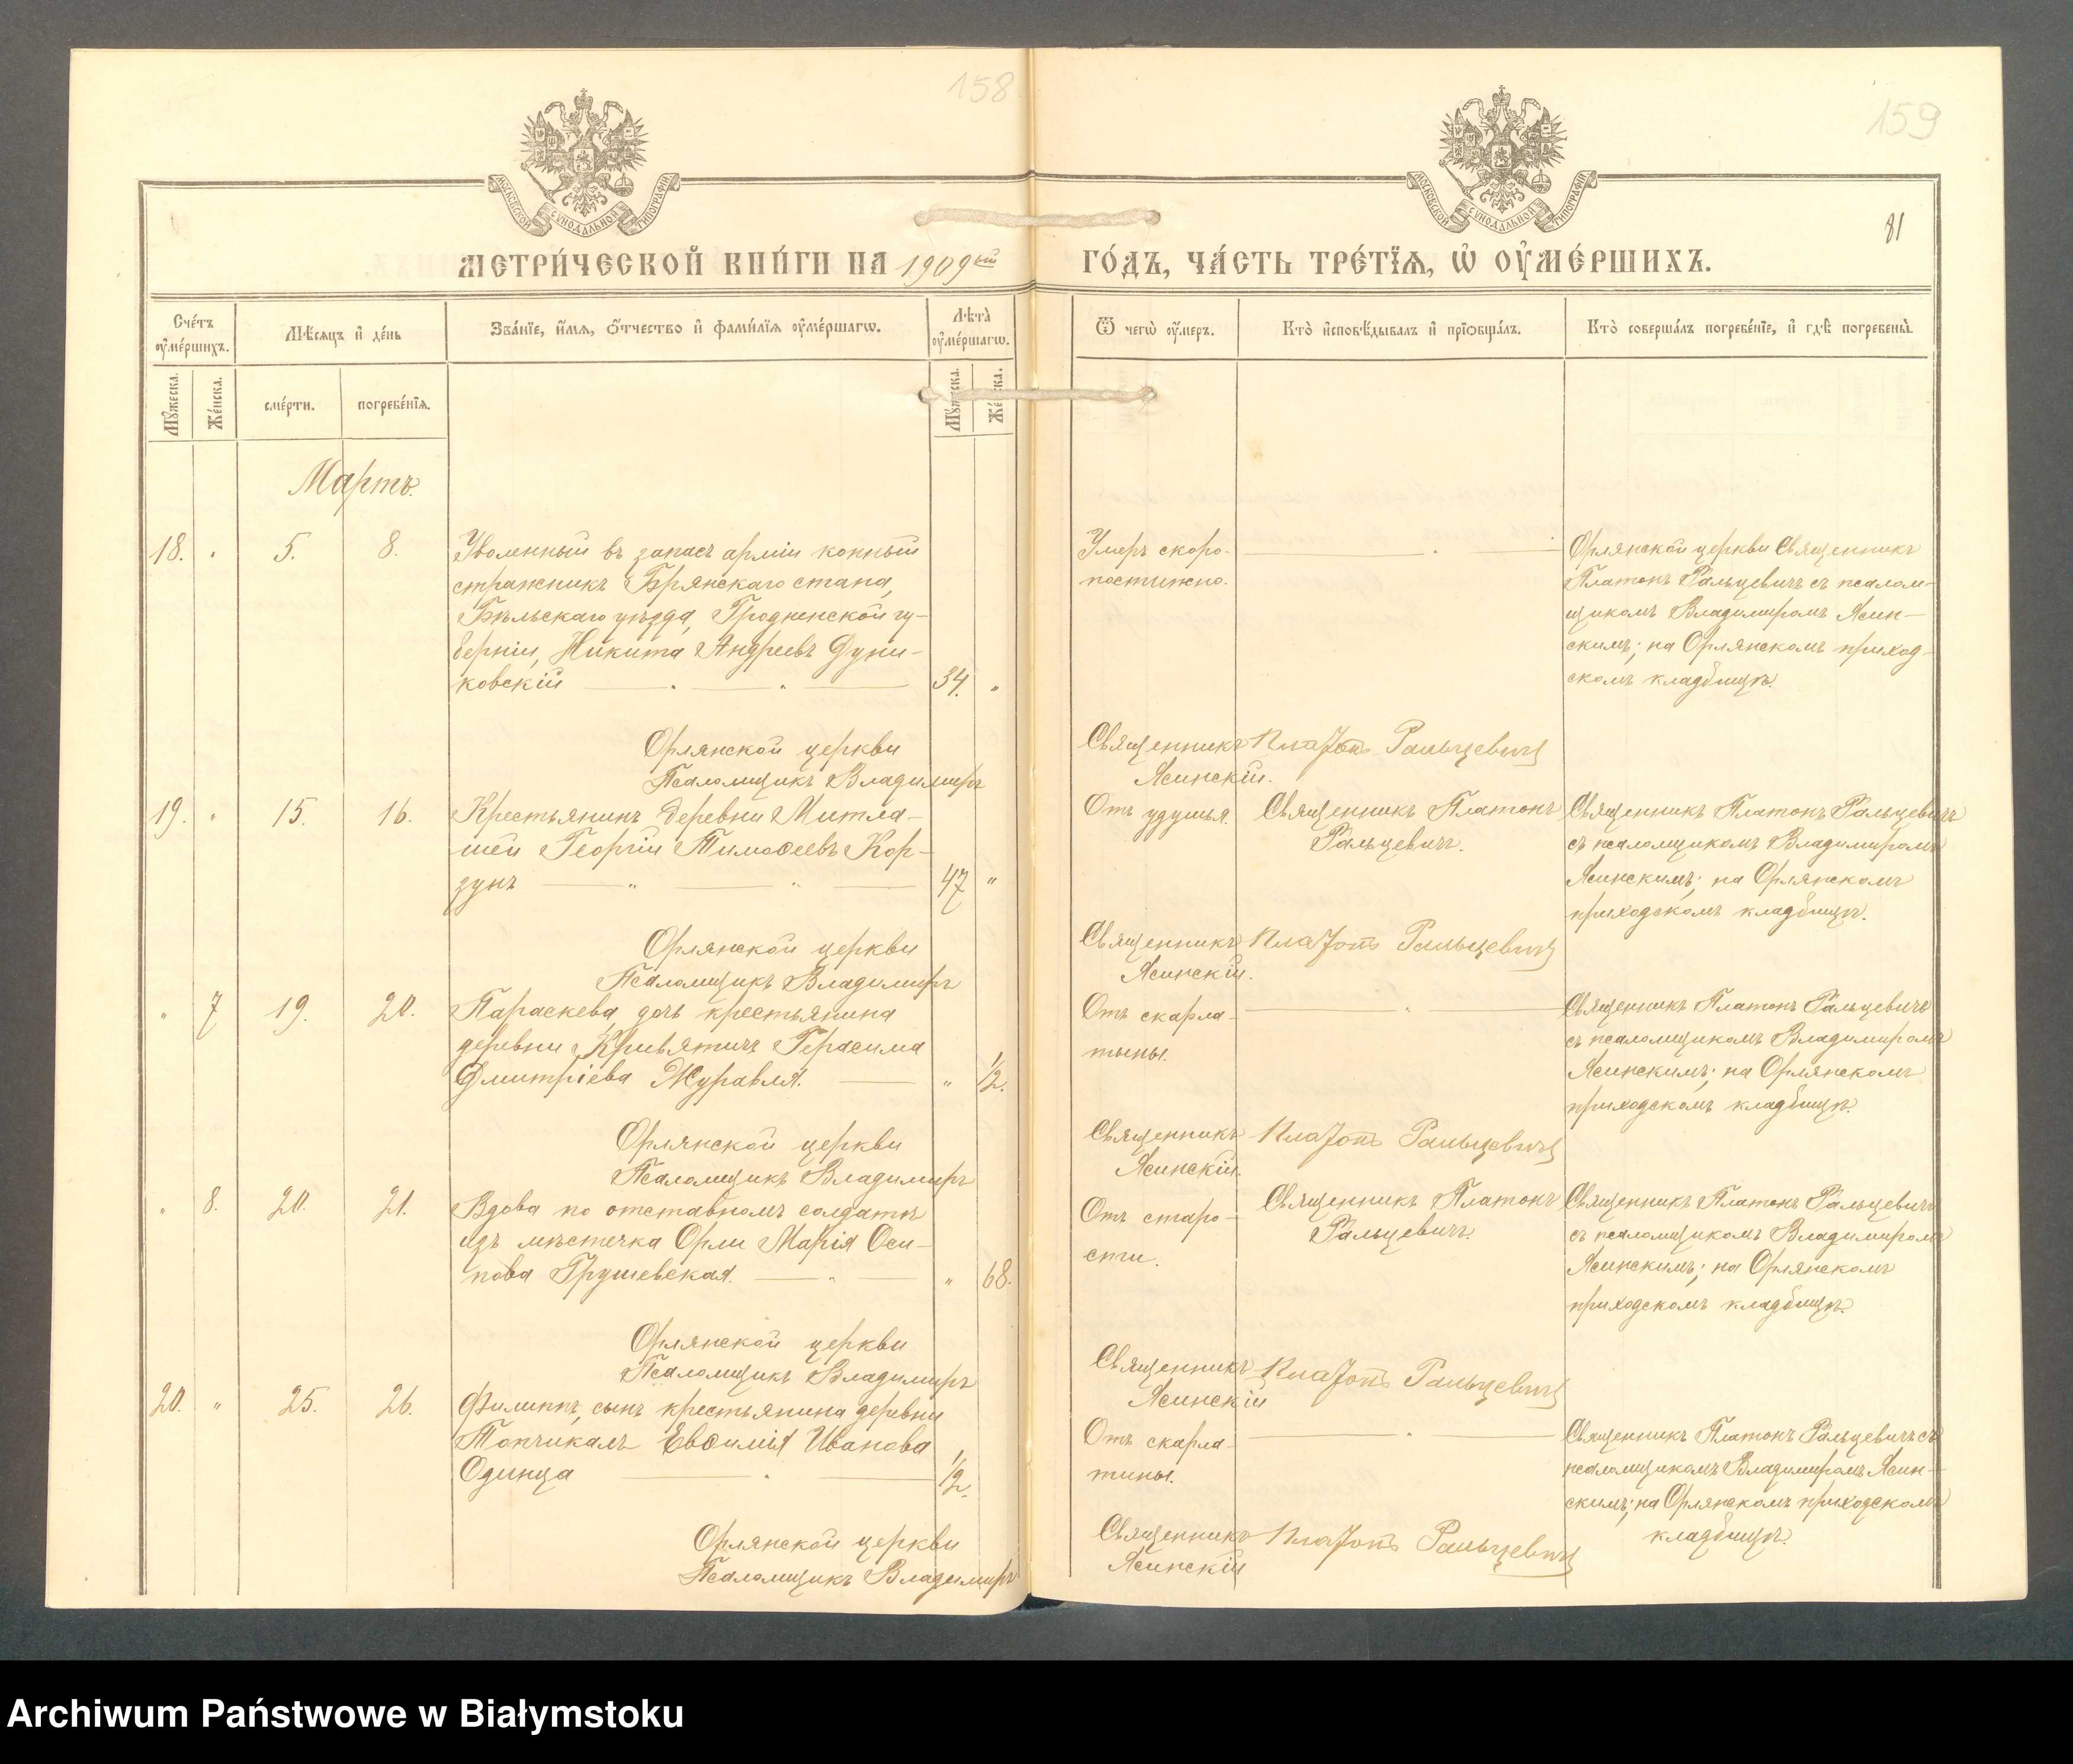 158
159
МОСКОВСКОЙ СѴНОДАЛЬНОЙ ТИПОГРАФІИ
МОСКОВСКОЙ СѴНОДАЛЬНОЙ ТИПОГРАФІИ
81
МЕТРИ́ЧЕСКОЙ КНИ́ГИ НА 1909ый
ГО́ДЪ, ЧА́СТЬ ТРЕ́ТЇѦ, Ѽ ОУ҆МЕ́РШИХЪ.
Сче́тъ оу҆ме́ршихъ.
Мѣ́сѧцъ и҆ де́нь
Зва́нїе, и҆́мѧ, ѻ҆́тчество и҆ фами́лїѧ оу҆ме́ршагѡ.
Лѣта̀ оу҆ме́ршагѡ.
Ѿ чегѡ̀ оу҆́меръ.
Кто̀ и҆сповѣ́дывалъ и҆ прїѻбща́лъ.
Кто̀ соверша́лъ погребе́нїе, и҆ гдѣ̀ погребены̀.
Мꙋ́жеска.
Же́нска.
сме́рти.
погребе́нїѧ.
Мꙋ́жеска.
Же́нска.
Мартъ.
18. " 5. 8. Уволенный въ запасъ арміи конный
стражникъ Брянскаго стана,
Бѣльскаго уѣзда, Гродненской гу-
берніи, Никита Андреевъ Дуни-
ковскій 34. "
Умеръ скоро-
постижно.
Орлянской церкви Священникъ
Платонъ Ральцевичъ съ псалом-
щикомъ Владимиромъ Ясин-
скимъ; на Орлянскомъ приход-
скомъ кладбищѣ.
Орлянской церкви Священникъ Платонъ Ральцевичъ
Псаломщикъ Владимиръ Ясинскій.
19. " 15. 16. Крестьянинъ деревни Митла-
шей Георгій Тимоѳеевъ Кор-
зунъ 47 "
Отъ удушья.
Священникъ Платонъ
Ральцевичъ.
Священникъ Платонъ Ральцевичъ
съ псаломщикомъ Владимиромъ
Ясинскимъ; на Орлянскомъ
приходскомъ кладбищѣ.
Орлянской церкви Священникъ Платонъ Ральцевичъ
Псаломщикъ Владимиръ Ясинскій.
" 7 19. 20. Параскева, дочь крестьянина
деревни Кривятичъ Герасима
Дмитріева Журавля. " 1/2.
Отъ скарла-
тины.
Священникъ Платонъ Ральцевичъ
съ псаломщикомъ Владимиромъ
Ясинскимъ; на Орлянскомъ
приходскомъ кладбищѣ.
Орлянской церкви Священникъ Платонъ Ральцевичъ
Псаломщикъ Владимиръ Ясинскій.
" 8. 20. 21. Вдова по отставномъ солдатѣ
изъ мѣстечка Орли Марія Оси-
пова Грушевская. " 68.
Отъ старо-
сти.
Священникъ Платонъ
Ральцевичъ.
Священникъ Платонъ Ральцевичъ
съ псаломщикомъ Владимиромъ
Ясинскимъ; на Орлянскомъ
приходскомъ кладбищѣ.
Орлянской церкви Священникъ Платонъ Ральцевичъ
Псаломщикъ Владимиръ Ясинскій
20. " 25. 26. Филиппъ, сынъ крестьянина деревни
Топчикалъ Евѳимія Иванова
Одинца 1/2.
Отъ скарла-
тины.
Священникъ Платонъ Ральцевичъ съ
псаломщикомъ Владимиромъ Ясин-
скимъ; на Орлянскомъ приходскомъ
кладбищѣ.
Орлянской церкви Священникъ Платонъ Ральцевичъ
Псаломщикъ Владимиръ Ясинскій
Archiwum Państwowe w Białymstoku